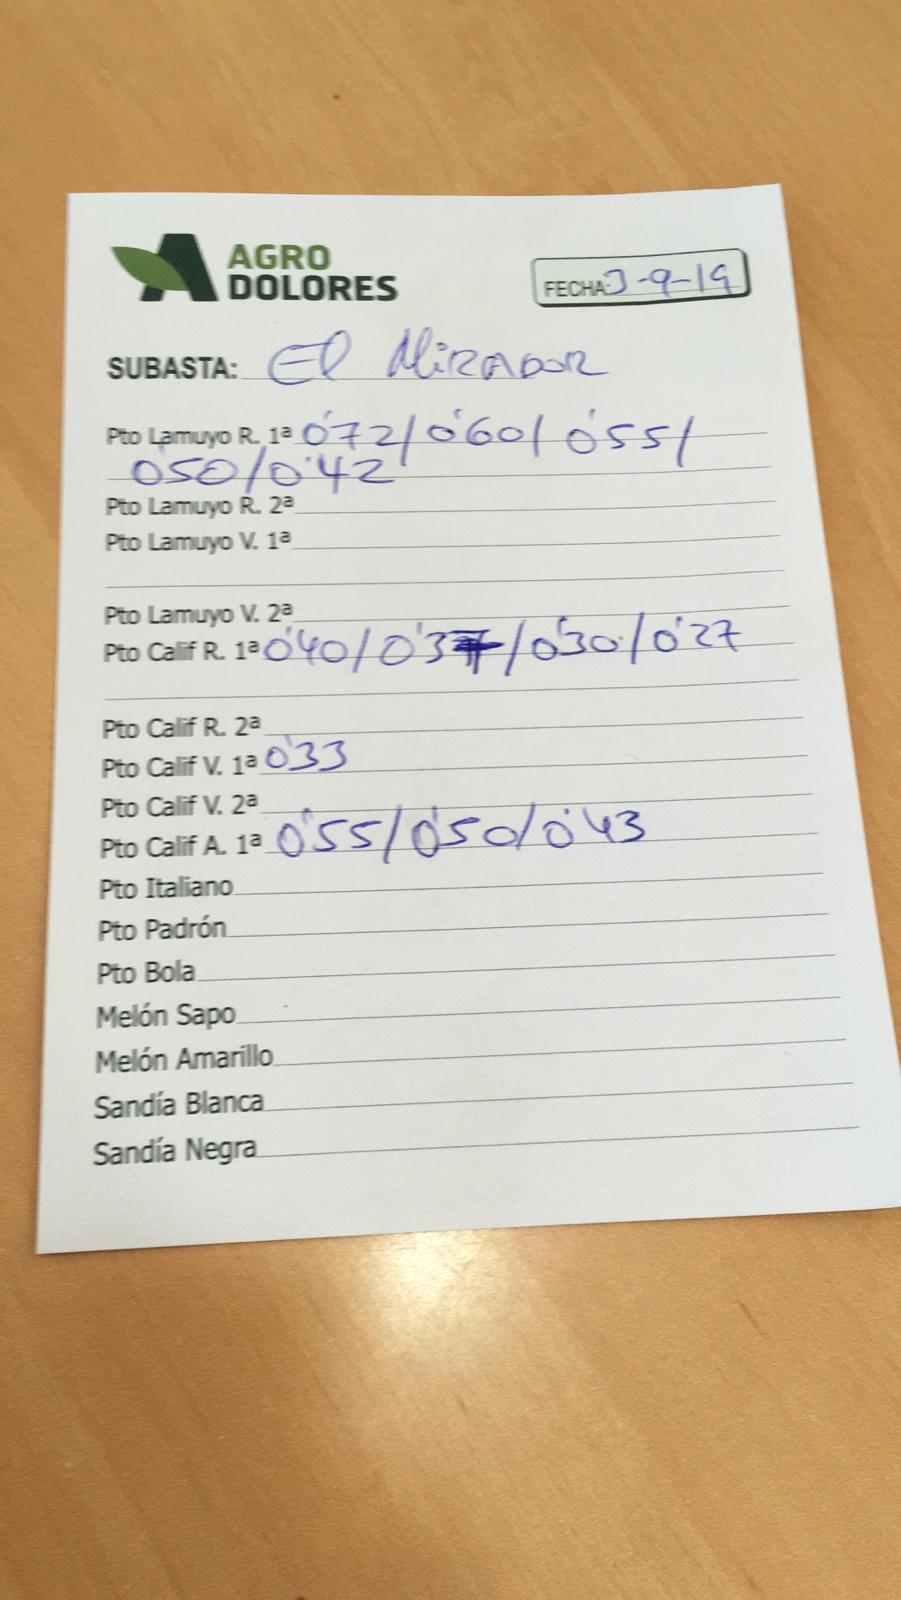 AGRO
DOLORES
FECHA: 3-9-19
SUBASTA: El MiRADOR
Pto Lamuyo R. 1ª 0'72/0'60/0'55/
0'50/0'42
Pto Lamuyo R. 2ª
Pto Lamuyo V. 1ª
Pto Lamuyo V. 2ª
Pto Calif R. 1ª 0'40/0'37/0'30/0'27
Pto Calif R. 2ª
Pto Calif V. 1ª 0'33
Pto Calif V. 2ª
Pto Calif A. 1ª 0'55/0'50/0'43
Pto Italiano
Pto Padrón
Pto Bola
Melón Sapo
Melón Amarillo
Sandía Blanca
Sandía Negra